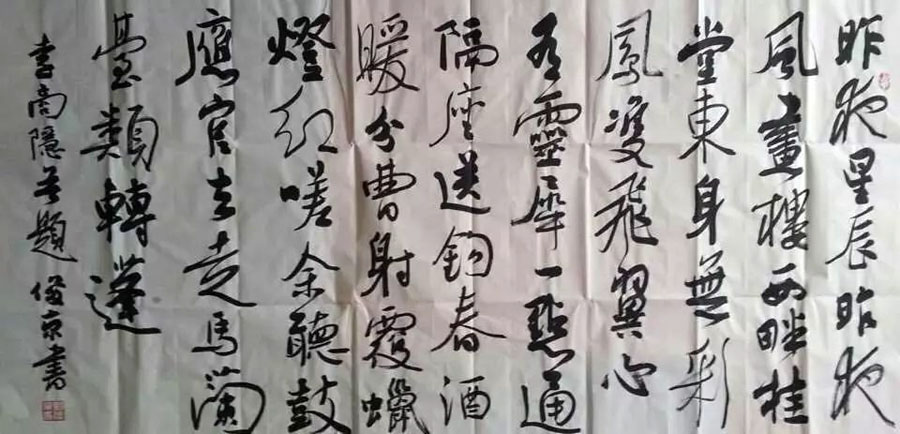 昨夜星辰昨夜
風畫樓西畔桂
堂東身無彩
鳳雙飛翼心
有靈犀一點通
隔座送鈎春酒
暖分曹射覆蠟
燈紅嗟余聽鼓
應官去走馬蘭
臺類轉蓬
李商隱無題 俊京書